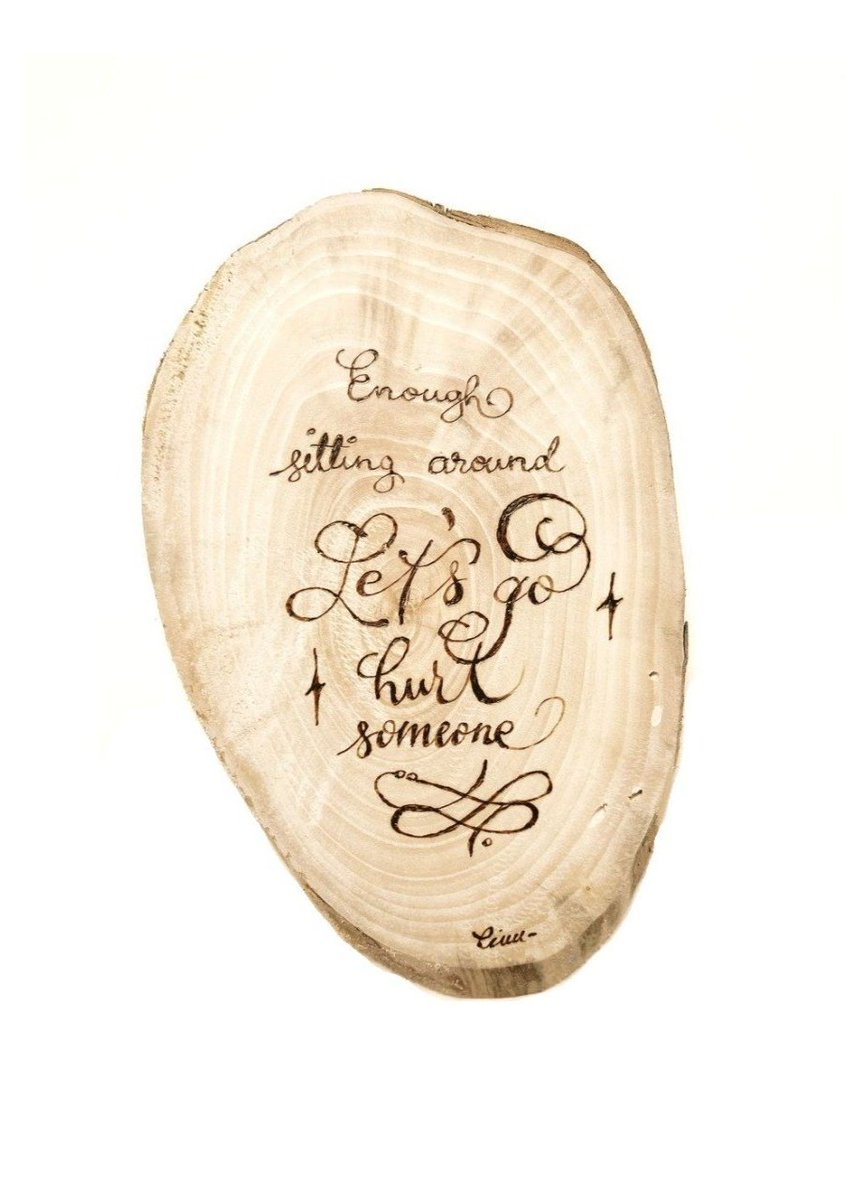 Enough
sitting around
Let's go
hurt
someone